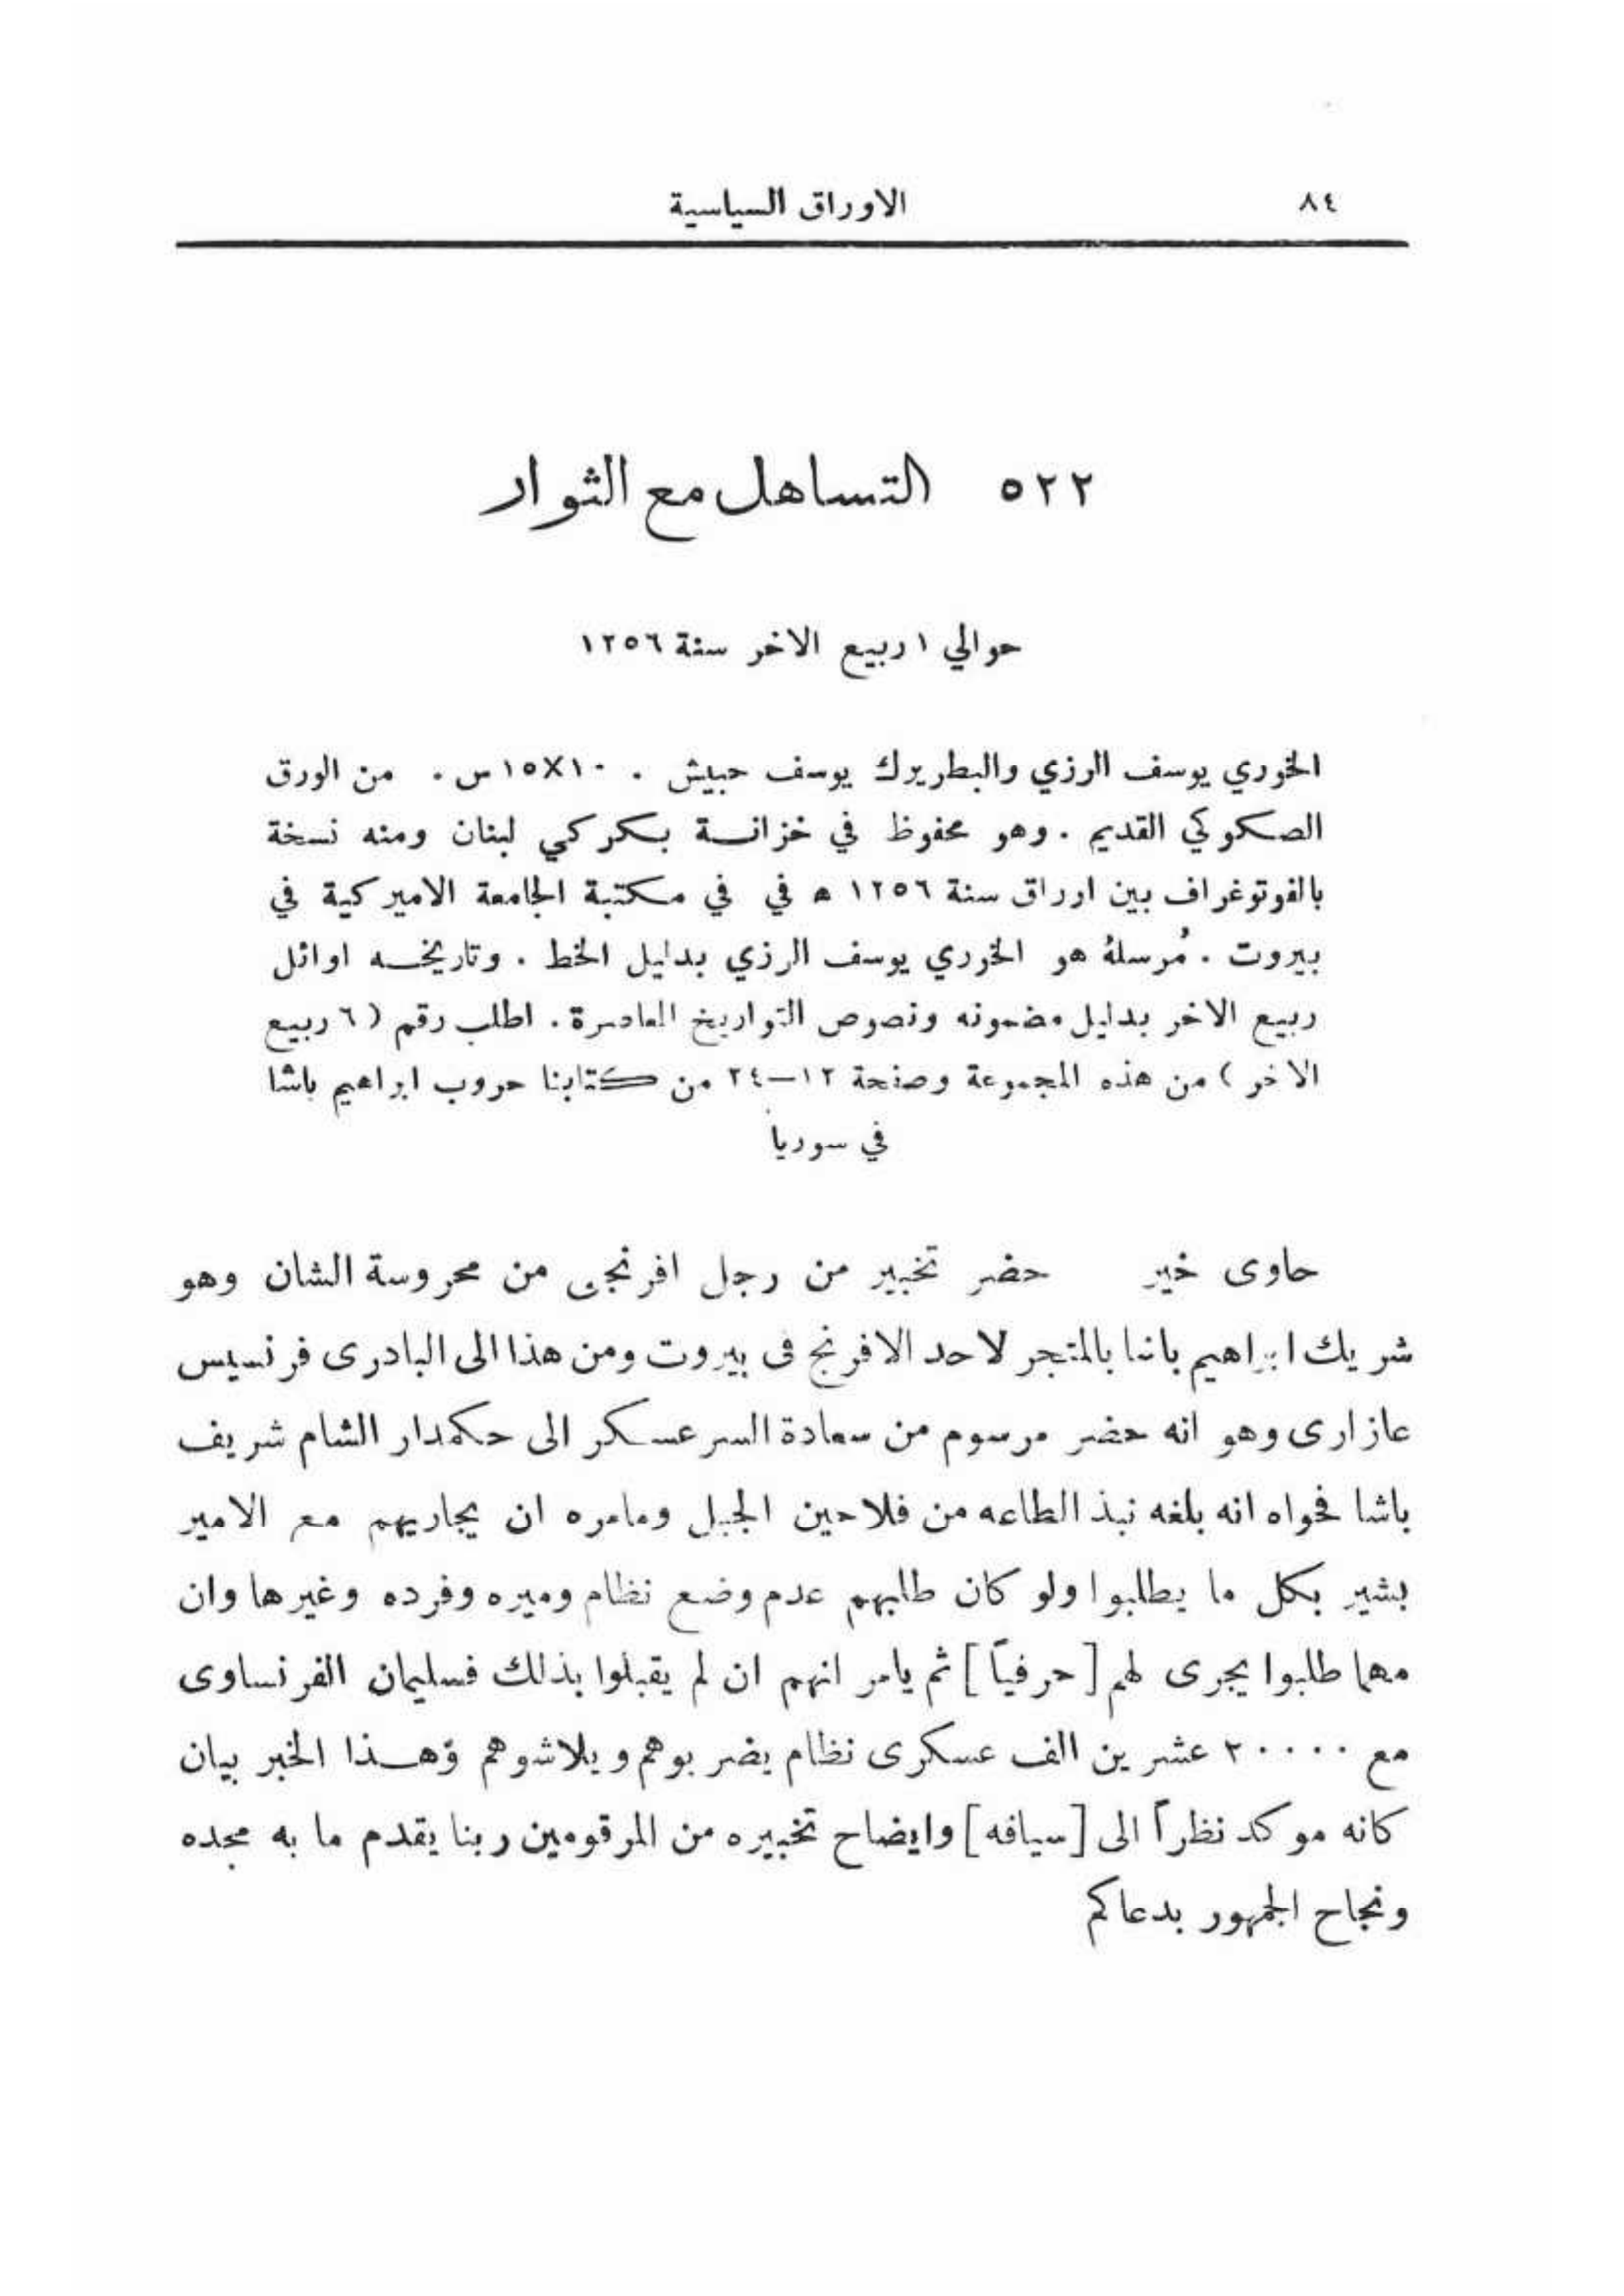 ٨٤
الاوراق السياسية
٥٢٢ التساهل مع الثوار
حوالي ١ ربيع الاخر سنة ١٢٥٦
الخوري يوسف الرزي والبطريرك يوسف حبيش . ١٠×١٥ س . من الورق
الصكوكي القديم . وهو محفوظ في خزانة بكركي لبنان ومنه نسخة
بالفوتوغراف بين اوراق سنة ١٢٥٦ ه في في مكتبة الجامعة الاميركية في
بيروت . مُرسلهُ هو الخوري يوسف الرزي بدليل الخط . وتاريخه اوائل
ربيع الاخر بدليل مضمونه ونصوص التواريخ المعاصرة . اطلب رقم ( ٦ ربيع
الاخر ) من هذه المجموعة وصفحة ١٢–٢٤ من كتابنا حروب ابراهيم باشا
في سوريا
حاوى خير حضر تخبير من رجل افرنجى من محروسة الشان وهو
شريك ابراهيم باشا بالمتجر لاحد الافرنج فى بيروت ومن هذا الى البادرى فرنسيس
عازارى وهو انه حضر مرسوم من سعادة السر عسكر الى حكمدار الشام شريف
باشا فحواه انه بلغه نبذ الطاعه من فلاحين الجبل ومامره ان يجاريهم مع الامير
بشير بكل ما يطلبوا ولو كان طلبهم عدم وضع نظام وميره وفرده وغيرها وان
مهما طلبوا يجرى لهم [حرفياً] ثم يامر انهم ان لم يقبلوا بذلك فسليمان الفرنساوى
مع ٢٠٠٠٠ عشرين الف عسكرى نظام يضربوهم ويلاشوهم وهذا الخبر بيان
كانه موكد نظراً الى [سيافه] وايضاح تخبيره من المرقومين ربنا يقدم ما به مجده
ونجاح الجمهور بدعاكم